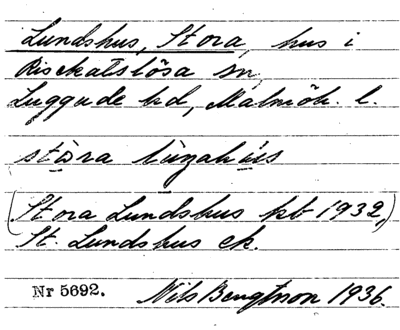 Lundshus, Stora, hus i
Risekatslösa sn,
Luggude hd, Malmöh. l.
stora lùnzahus
(Stora Lundshus kb 1932,)
St. Lundshus ek.
Nr 5692. Nils Bengtsson 1936.